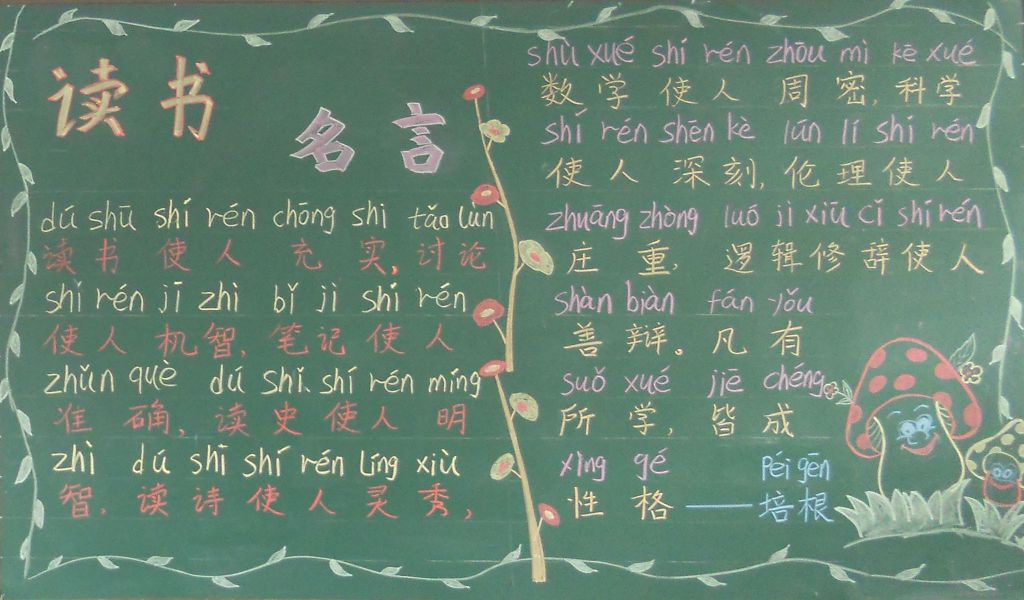 读书
名言
dú shū shí rén chōng shi tǎo lùn
读书 使人 充 实,讨论
shǐ rén jī zhì bǐ jì shí rén
使人 机智,笔记 使人
zhǔn què dú shǐ shí rén míng
准 确,读史使人 明
zhì dú shī shí rén líng xiù
智,读诗使人灵秀,
shù xué shí rén zhōu mì kē xué
数学 使人 周密,科学
shí rén shēn kè lún lí shí rén
使人 深刻,伦理使人
zhuāng zhòng luó jì xiū cí shí rén
庄 重,逻辑修辞使人
shàn biàn fán yǒu
善 辩。凡 有
suǒ xué jiē chéng
所 学,皆 成
xìng gé péi gēn
性 格——培根